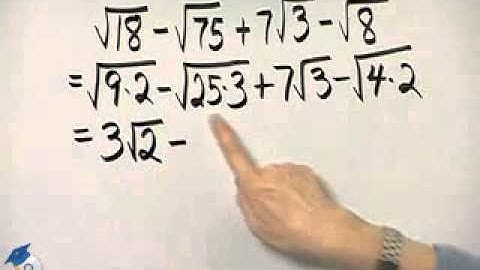 √18 - √75 + 7√3 - √8
= √9·2 - √25·3 + 7√3 - √4·2
= 3√2 -